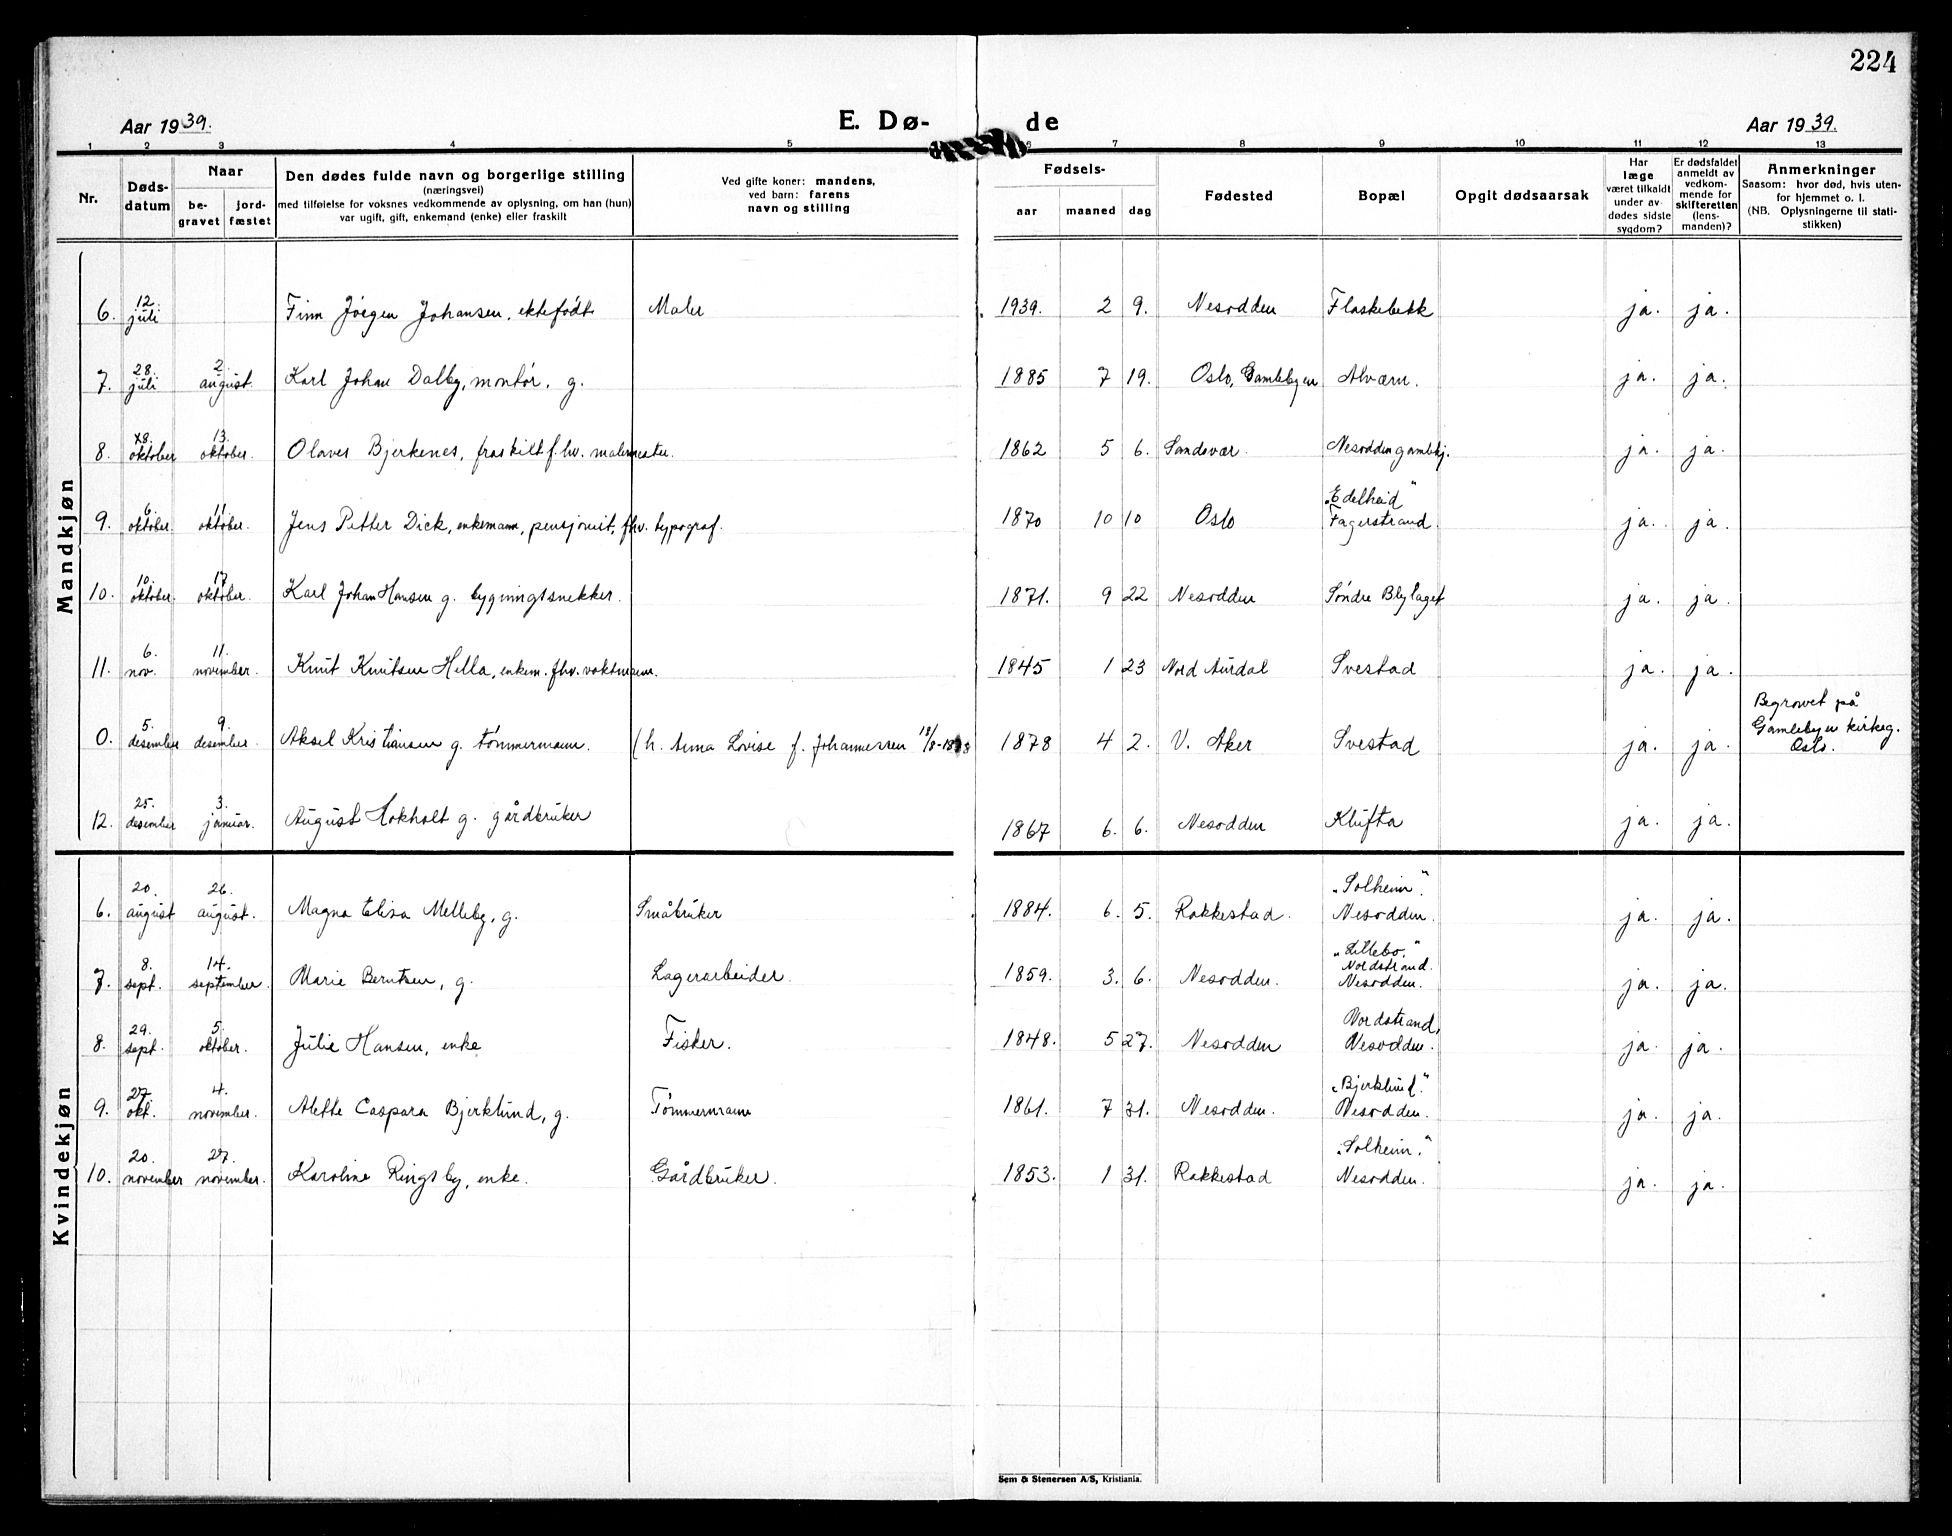 224
Aar 1939.
E. Dø-
de
Aar 1939.
1 2 3 4 5 6 7 8 9 10 11 12 13
Nr.
Døds-
datum
Naar
be-
gravet
jord-
fæstet
Den dødes fulde navn og borgerlige stilling
(næringsvei)
med tilføielse for voksnes vedkommende av oplysning, om han (hun)
var ugift, gift, enkemand (enke) eller fraskilt
Ved gifte koner: mandens,
ved barn: farens
navn og stilling
Fødsels-
aar maaned dag
Fødested
Bopæl
Opgit dødsaarsak
Har
læge
været tilkaldt
under av-
dødes sidste
sygdom?
Er dødsfaldet
anmeldt av
vedkom-
mende for
skifteretten
(lens-
manden)?
Anmerkninger
Saasom: hvor død, hvis uten-
for hjemmet o. l.
(NB. Oplysningerne til stati-
stikken)
Mandkjøn
6. 12. juli Finn Jørgen Johansen, ektefødt Maler 1939. 2 9. Nesodden Flaskebekk ja. ja.
7. 28. juli 2. august. Karl Johan Dalby, montør, g. 1885 7 19. Oslo, Gamlebyen Alværn. ja. ja.
8. oktober 13. oktober. Olaves Bjerkenes, fraskilt f.hv. malermester. 1862 5 6. Sandsvær. Nesodden gamlehj. ja. ja.
9. 6. oktober. 11. oktober. Jens Petter Dick, enkemann, pensjonist, fhv. typograf. 1870 10 10 Oslo "Edelheid" Fagerstrand. ja. ja.
10. 10. oktober. 17. oktober. Karl Johan Hansen g. bygningssnekker. 1871. 9 22 Nesodden Søndre Blylaget ja. ja.
11. 6. nov. 11. november. Knut Knutsen Hella, enkem. fhv. vaktmann. 1845 1 23 Nord Aurdal Svestad ja. ja.
0. 5. desember 9. desember. Aksel Kristiansen g. tømmermann. (h. Anna Lovise f. Johannessen 18/8- 1878 4 2. V. Aker Svestad ja. ja. Begravet på Gamlebyen kirkeg. Oslo.
12. 25. desember 3. januar. August Hokholt g. gårdbruker 1867 6. 6. Nesodden Klufta ja. ja.
Kvindekjøn
6. 20. august 26. august. Magna Elisa Melleby, g. Småbruker 1884. 6. 5. Rakkestad. "Solheim". Nesodden. ja. ja.
7. 8. sept. 14. september. Marie Berntsen, g. Lagerarbeider. 1859. 3. 6. Nesodden. "Lillebo." Nordstrand. Nesodden. ja. ja.
8. 29. sept. 5. oktober. Julie Hansen, enke Fisker. 1848. 5 27. Nesodden Nordstrand, Nesodden. ja. ja.
9. 27. okt. 4. november. Alette Caspara Bjerklund, g. Tømmermann 1861. 7 31. Nesodden. "Bjerklund". Nesodden. ja. ja.
10. 20. november 27. november. Karoline Ringsby, enke. Gårdbruker. 1853. 1 31. Rakkestad "Solheim". Nesodden. ja. ja.
Sem & Stenersen A/S, Kristiania.